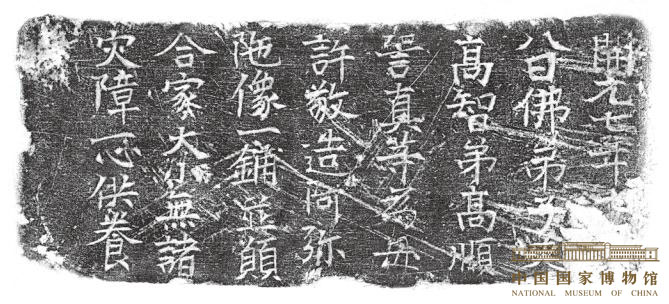 開元七年十
八日佛弟子
高智弟高順
真等為母
許敬造阿弥
陁像一鋪並願
合家大小無諸
灾障一心供養
中国国家博物馆
NATIONAL MUSEUM OF CHINA